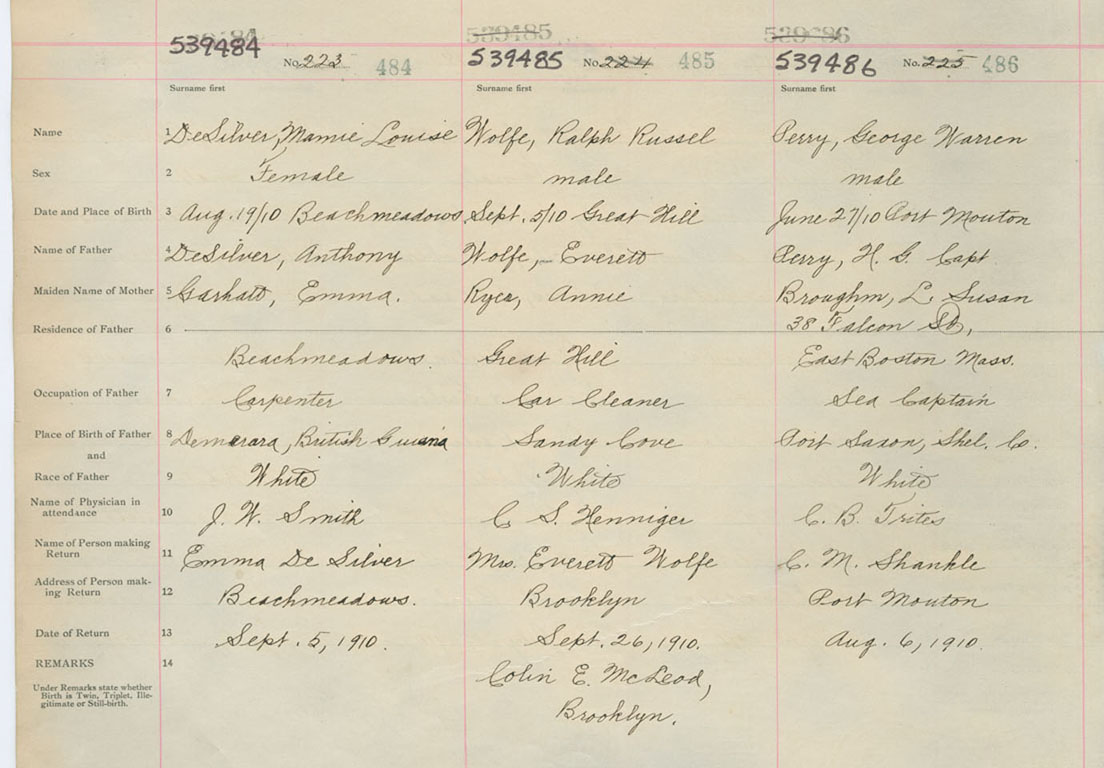 539484 539485 539486
539484 No. 223 484 539485 No. 224 485 539486 No. 225 486
Surname first Surname first Surname first
Name 1 DeSilver, Mamie Louise Wolfe, Ralph Russel Perry, George Warren
Sex 2 Female male male
Date and Place of Birth 3 Aug. 19/10 Beachmeadows Sept. 5/10 Great Hill June 27/10 Port Mouton
Name of Father 4 DeSilver, Anthony Wolfe, Everett Perry, H. G. Capt
Maiden Name of Mother 5 Garhatt, Emma. Ryer, Annie Broughm, L. Susan
Residence of Father 6 38 Falcon St,
Beachmeadows. Great Hill East Boston Mass.
Occupation of Father 7 Carpenter Car Cleaner Sea Captain
Place of Birth of Father 8 Demerara, British Guiana Sandy Cove Port Saxon, Shel. C.
and
Race of Father 9 White White White
Name of Physician in
attendance 10 J. W. Smith C. S. Henniger C. B. Trites
Name of Person making
Return 11 Emma De Silver Mrs. Everett Wolfe C. M. Shankle
Address of Person mak-
ing Return 12 Beachmeadows. Brooklyn Port Mouton
Date of Return 13 Sept. 5, 1910. Sept. 26, 1910. Aug. 6, 1910.
REMARKS 14 Colin E. McLeod,
Under Remarks state whether
Birth is Twin, Triplet, Ille-
gitimate or Still-birth.
Brooklyn.